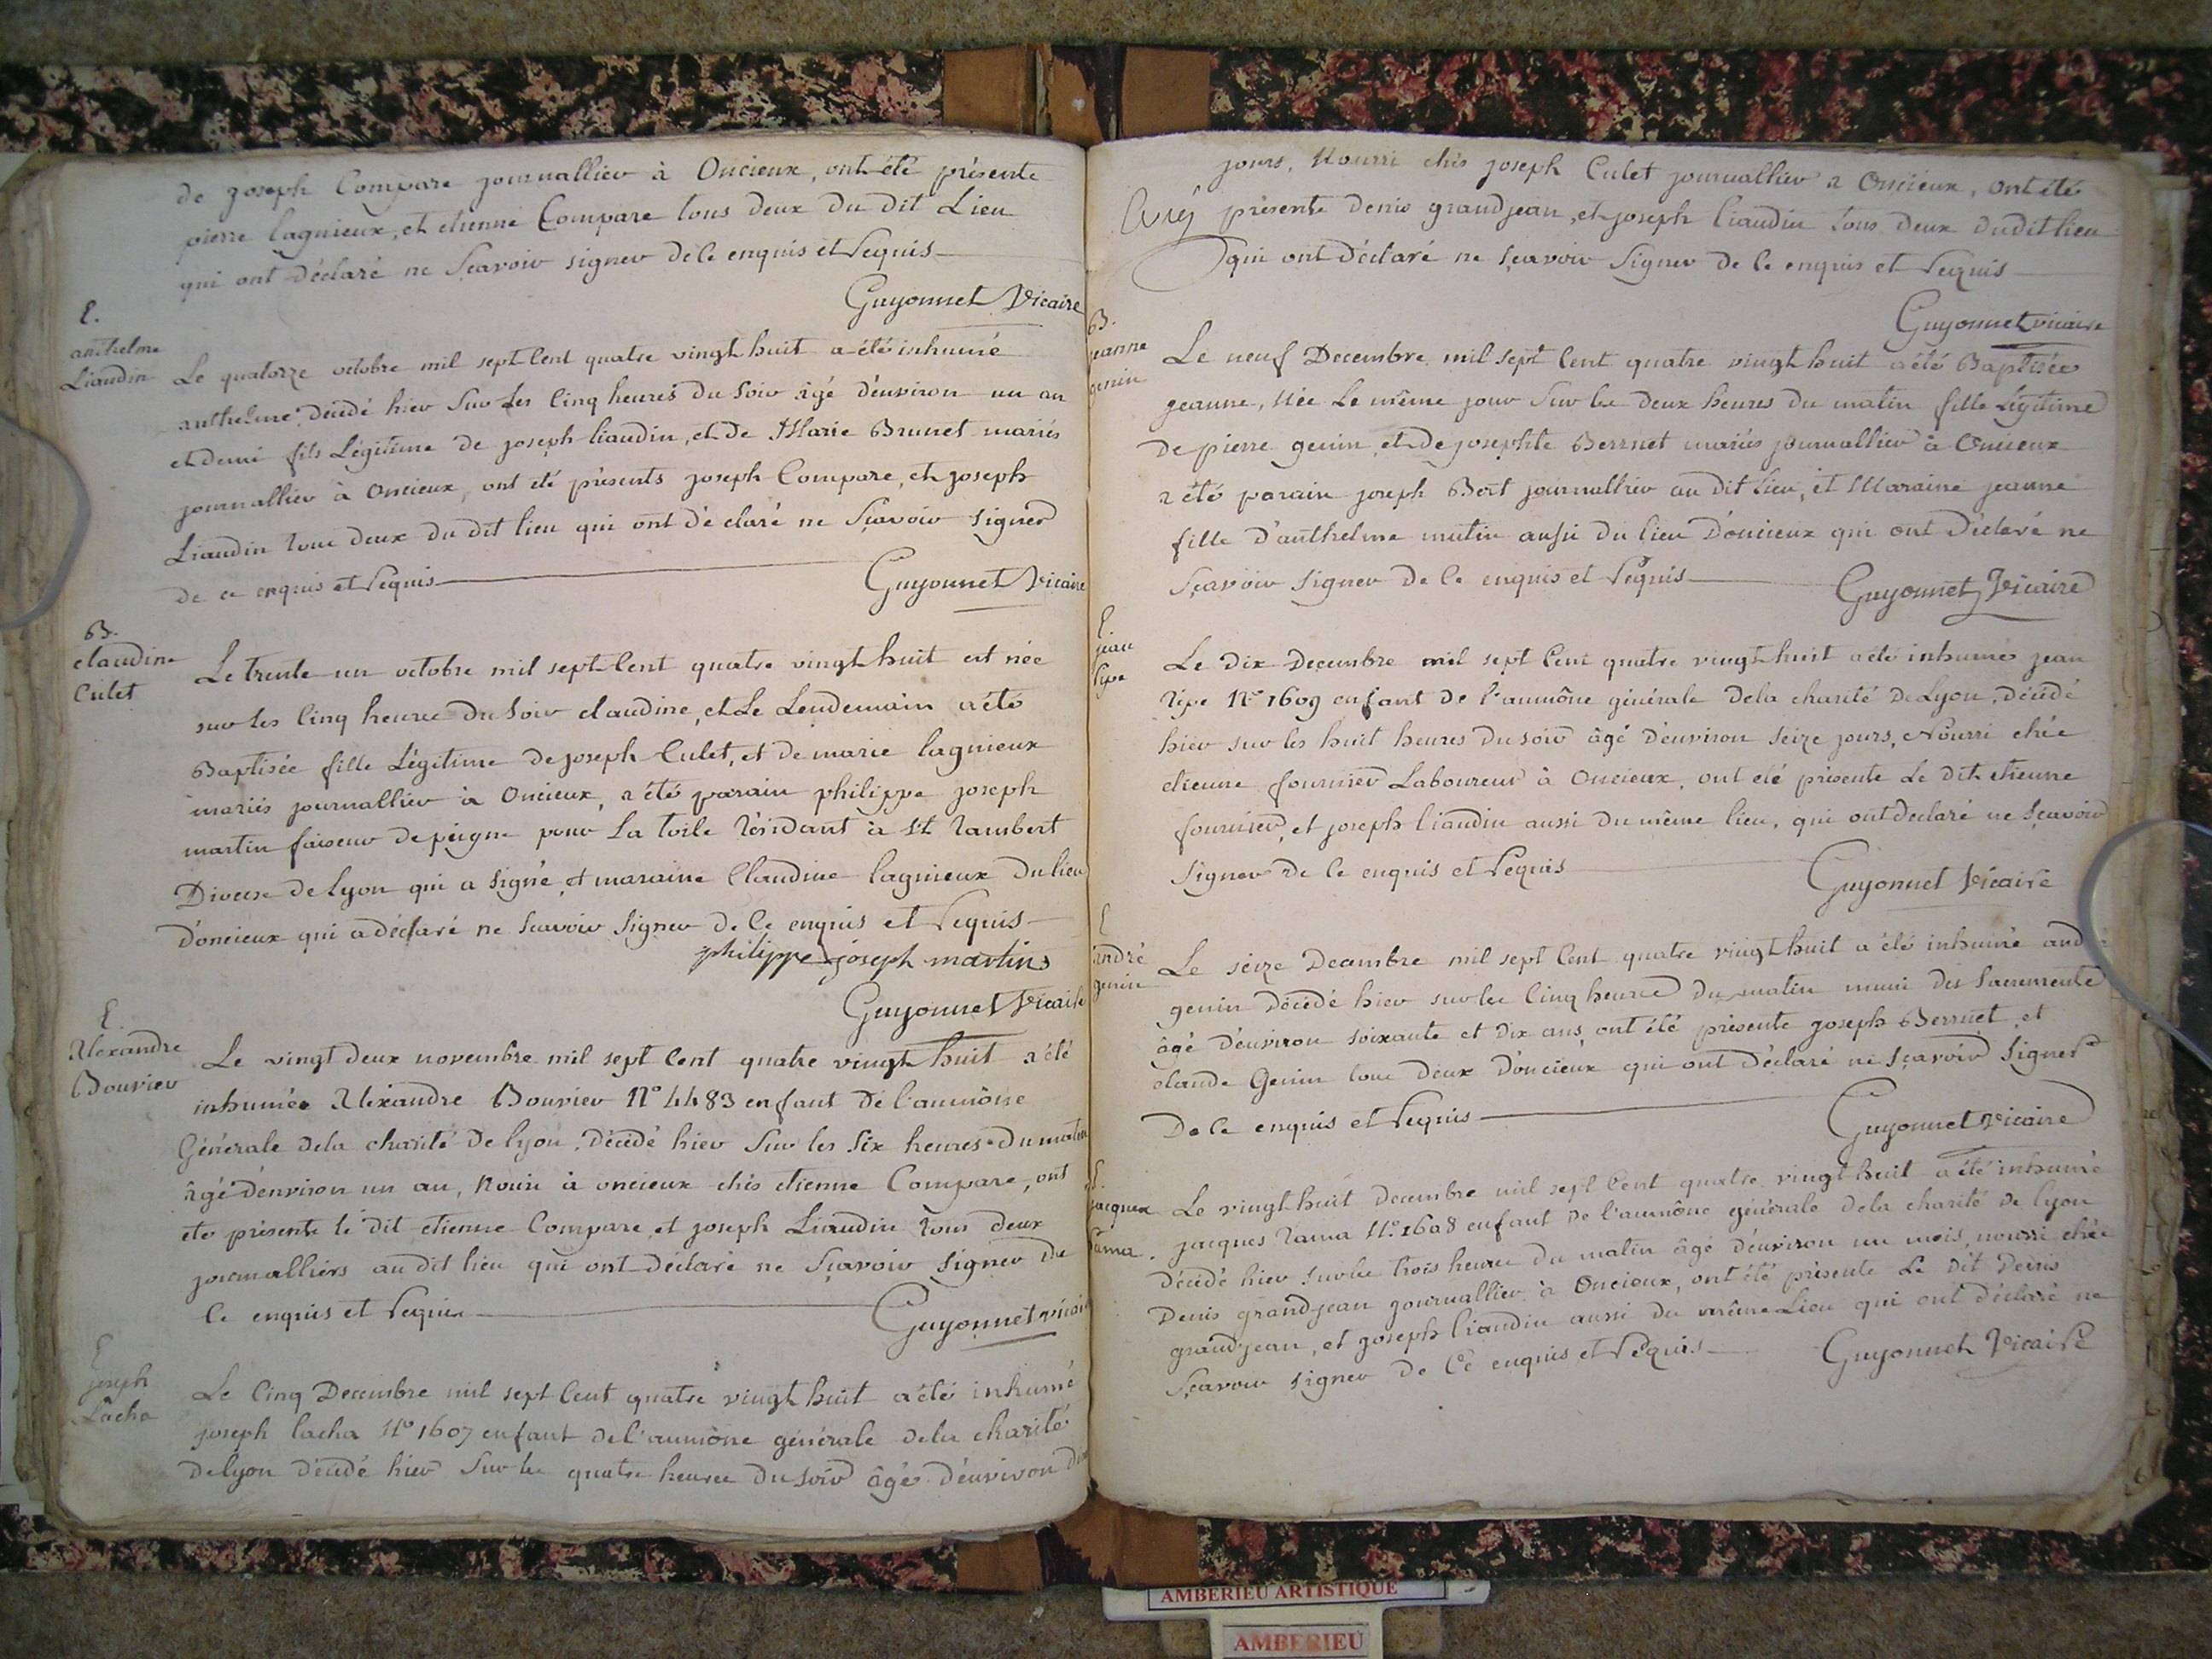 de joseph Compare journallier à Oncieux, ont été présents
pierre lagnieux, et etienne Compare tous deux du dit Lieu
qui ont déclaré ne Sçavoir signer de ce enquis et requis
Guyonnet Vicaire
E.
anthelme
Liaudin
Le quatorze octobre mil sept cent quatre vingt huit a été inhumé
anthelme, décédé hier Sur Les cinq heures du Soir âgé d'environ un an
et demi fils Légitime de joseph liaudin, et de Marie Brunet mariés
journallier à Oncieux, ont été présents joseph Compare, et joseph
Liaudin tous deux du dit lieu qui ont déclaré ne Sçavoir signer
de ce enquis et requis
Guyonnet Vicaire
B.
claudine
Culet
Le trente un octobre mil sept cent quatre vingt huit est née
sur les cinq heures du Soir claudine, et Le Lendemain a été
Baptisée fille Légitime de joseph Culet, et de marie lagnieux
mariés journallier à Oncieux, a été parain philippe joseph
martin faiseur de peigne pour La toile résidant à st rambert
Diocese de Lyon qui a signé, et maraine Claudine lagnieux du lieu
d'oncieux qui a déclaré ne Scavoir signer de ce enquis et requis
philippe joseph martin
Guyonnet Vicaire
E.
Alexandre
Bouvier
Le vingt deux novembre mil sept cent quatre vingt huit a été
inhumée Alexandre Bouvier N° 4483 enfant de l'aumône
Générale de la charité de lyon, décédé hier Sur les six heures du matin
âgé d'environ un an, nouri à oncieux chés etienne Compare, ont
eté présents le dit etienne Compare, et joseph Liaudin tous deux
journalliers au dit lieu qui ont déclaré ne Sçavoir signer de
ce enquis et requis
Guyonnet vicaire
E
joseph
Lacha
Le Cinq Decembre mil sept cent quatre vingt huit a été inhumé
joseph lacha N° 1607 enfant de l'aumône générale de la charité
de lyon décédé hier Sur les quatre heures du soir âgé d'environ
jours, Nourri chés joseph Culet journallier a Oncieux, ont été
présents denis grandjean, et joseph liaudin tous deux du dit lieu
qui ont déclaré ne sçavoir Signer de ce enquis et requis
Guyonnet vicaire
B.
jeanne
genin
Le neuf Decembre mil sept cent quatre vingt huit a été Baptisée
jeanne, Née Le même jour Sur les deux heures du matin fille Légitime
de pierre genin, et de josephte Berrnet mariés journallier à Oncieux
a été parain joseph Bort journallier au dit lieu, et Maraine jeanne
fille d'anthelme mutin aussi du lieu d'oncieux qui ont déclaré ne
Sçavoir Signer de ce enquis et requis
Guyonnet Vicaire
E.
jean
Le dix Decembre mil sept cent quatre vingt huit a été inhumés jean
N° 1609 enfant de l'aumône générale de la charité de Lyon, décédé
hier sur les huit heures du soir âgé d'environ seize jours, Nourri chés
etienne fournier Laboureur à Oncieux, ont été présents Le dit etienne
fournier, et joseph liaudin aussi du même lieu, qui ont declaré ne Sçavoir
Signer de ce enquis et requis
Guyonnet Vicaire
E
andré
genin
Le seize Decembre mil sept cent quatre vingt huit a été inhumé andré
genin décédé hier sur les cinq heures du matin muni des Sacrements
âgé d'environ soixante et dix ans, ont été présents joseph Berrnet, et
claude Genin tous deux d'oncieux qui ont déclaré ne sçavoir signer
De ce enquis et requis
Guyonnet vicaire
E.
jacques
rama.
Le vingt huit decembre mil sept cent quatre vingt huit a été inhumé
jacques rama N° 1608 enfant de l'aumône générale de la charité de lyon
décédé hier sur les trois heures du matin âgé d'environ un mois, nourri chés
Denis grandjean journallier à Oncieux, ont été présents Le dit denis
grandjean, et joseph liaudin aussi du même Lieu qui ont déclaré ne
Sçavoir signer de ce enquis et requis
Guyonnet Vicaire
AMBERIEU ARTISTIQUE
AMBERIEU